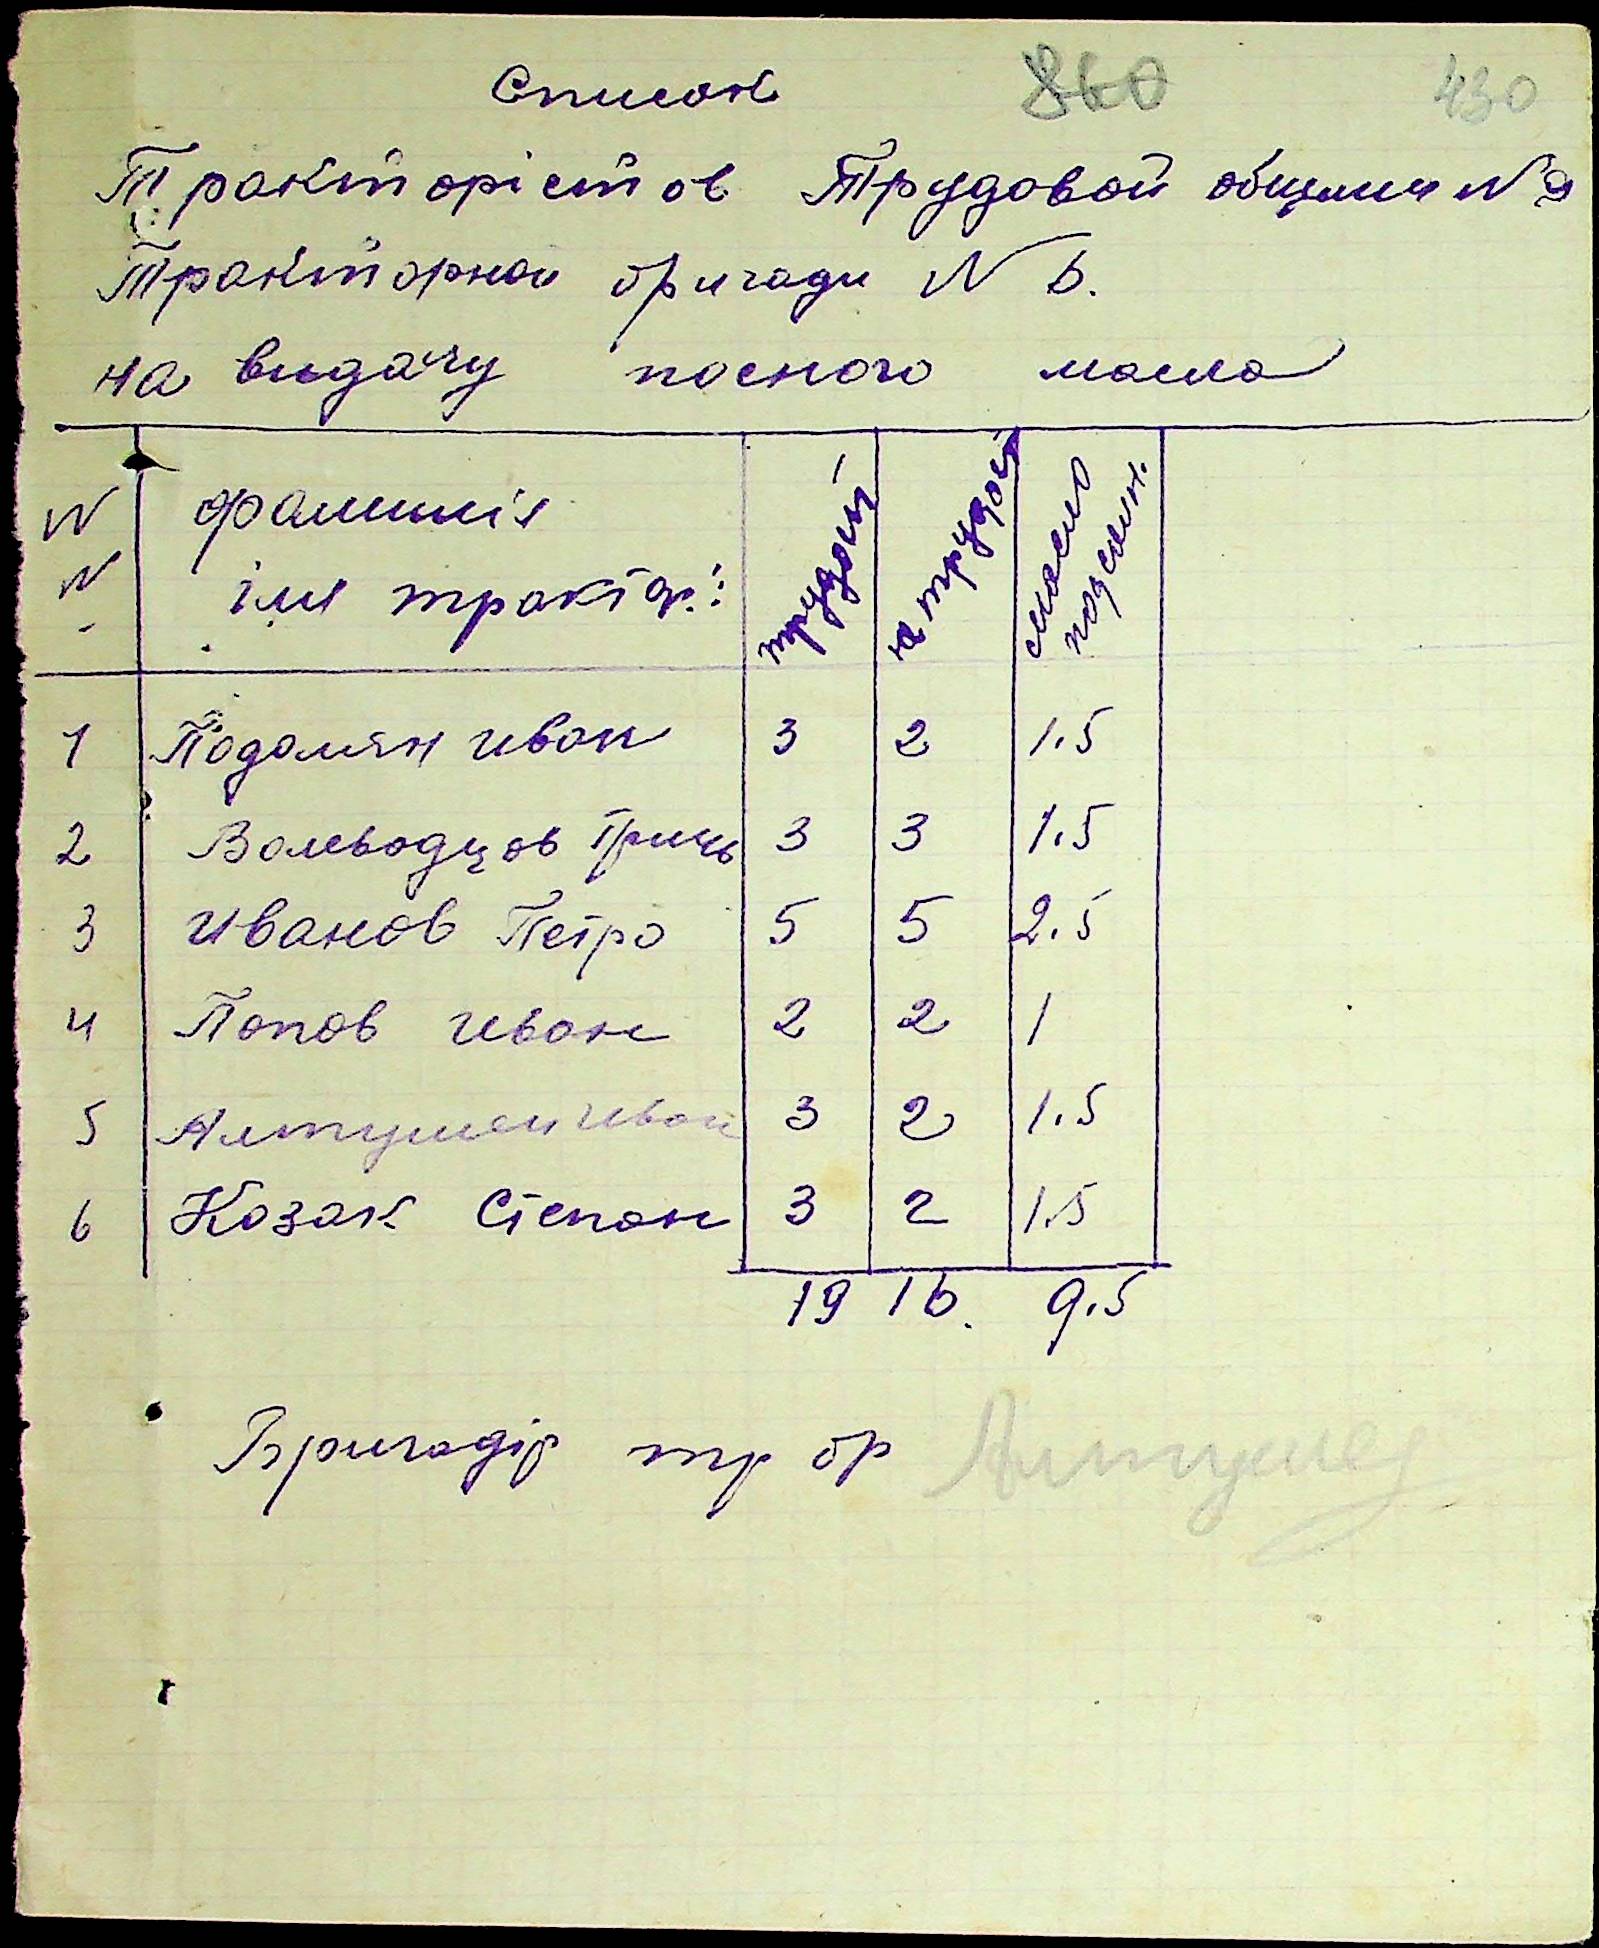 Список 860 430
Тракторістов Трудовой общини №9
Тракторной бригади N 6.
на видачу посного масла
N N фамилія імя трактор: трудост на трудост масло подсолн.
1 Подолян иван 3 2 1.5
2 Волеводцов Гриць 3 3 1.5
3 Иванов Петро 5 5 2.5
4 Попов иван 2 2 1
5 Алтушеи иван 3 2 1.5
6 Козак Степан 3 2 1.5
19 16. 9.5
Бригадір тр бр